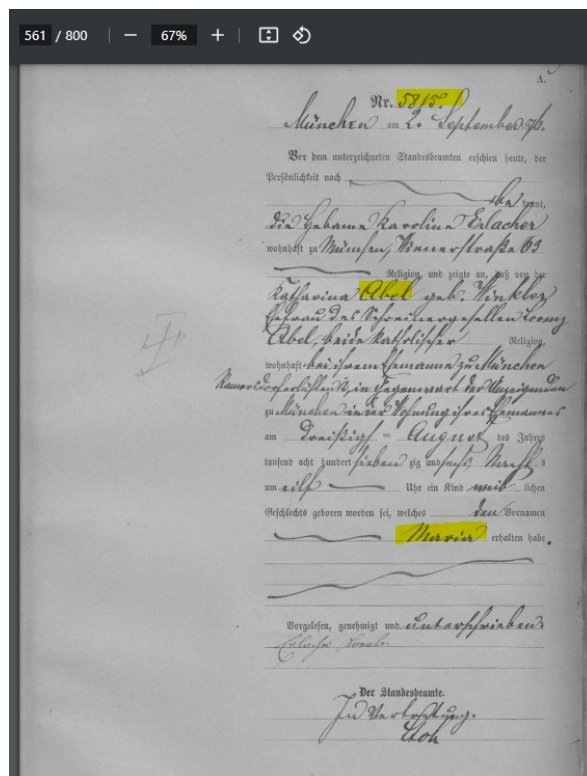 561 / 800 | — 67% + |
A.
Nr. 5815.
München am 2. September 76.
Vor dem unterzeichneten Standesbeamten erschien heute, der
Persönlichkeit nach
be kannt,
die Hebame Karolina Erlacher
wohnhaft zu München, Wienerstraße 63
Religion, und zeigte an, daß von der
Katharina Abel geb. Winkler,
Ehefrau des Schreinergesellen Lorenz
Abel, beide katholischer Religion,
wohnhaft bei ihrem Ehemanne zu München
in Gegenwart der Anzeigenden
zu München in der Wohnung ihres Ehemannes
am dreißigst en August des Jahres
tausend acht hundert sieben zig und sechs Nachts
um eilf Uhr ein Kind weib lichen
Geschlechts geboren worden sei, welches den Vornamen
Maria erhalten habe.
Vorgelesen, genehmigt und unterschrieben:
Der Standesbeamte.
In Vertretung.